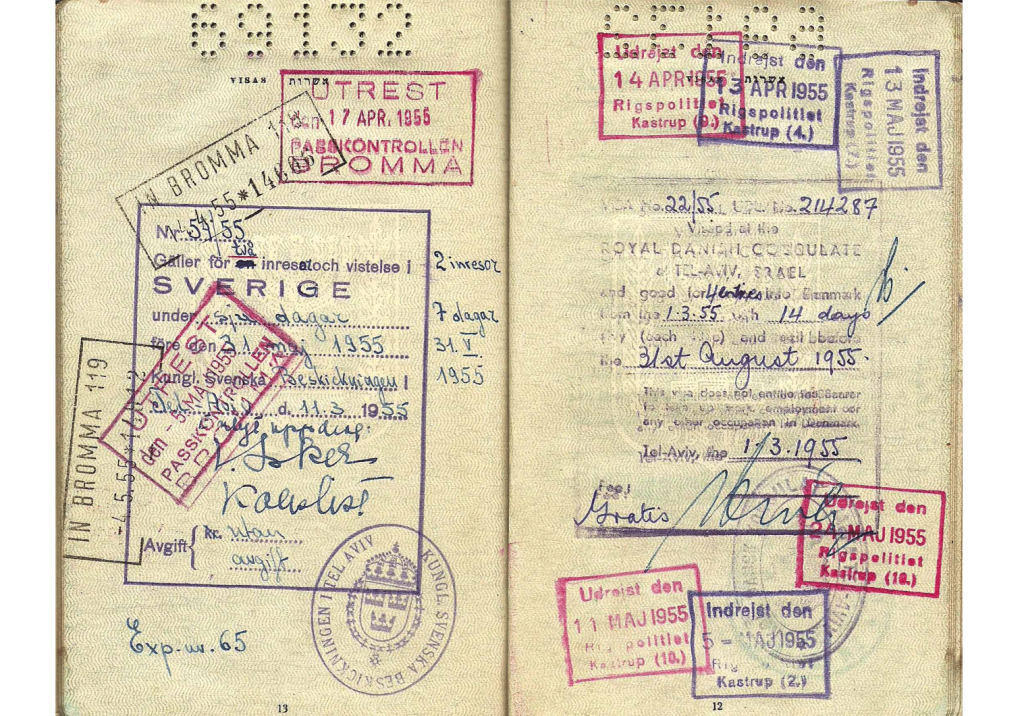 69132
VISAS אשרות
UTREST
den 17 APR. 1955
PASSKONTROLLEN
BROMMA
IN BROMMA 118
4.55*14
Nr 59/55
två
Gäller för en inresa och vistelse i 2 inresor
SVERIGE
under sju dagar 7 dagar
före den 31 maj 1955 31.V.
Kungl. Svenska Beskickningen i 1955
Tel-Aviv d. 11.3. 1955
Enligt uppdrag:
Kanslist
Avgift { kr. utan
avgift
UTREST
den - 5 MAJ 1955
PASSKONTROLLEN
IN BROMMA 119
-4.5.55*
KUNGL. SVENSKA BESKICKNINGEN I TEL AVIV
Exp.nr. 65
13
אשרות
Udrejst den
14 APR 1955
Rigspolitiet
Kastrup
Indrejst den
13 APR 1955
Rigspolitiet
Kastrup (4.)
Indrejst den
13 MAJ 1955
Rigspolitiet
Kastrup
VISA No. 22/55 No. 214287
Visaed at the
ROYAL DANISH CONSULATE
at TEL-AVIV, ISRAEL
and good for 4 entries into Denmark
from the 1.3.55 14 days
stay (each and
the 31st August 1955.
This visa does not entitle the bearer
to take up work, employment or
any other occupation in Denmark.
Tel-Aviv, the 1/3.1955
Fee:
Gratis
Udrejst den
24 MAJ 1955
Rigspolitiet
Kastrup (10.)
Udrejst den
11 MAJ 1955
politiet
Kastrup (10.)
Indrejst den
5 - MAJ 1955
Kastrup (2.)
12